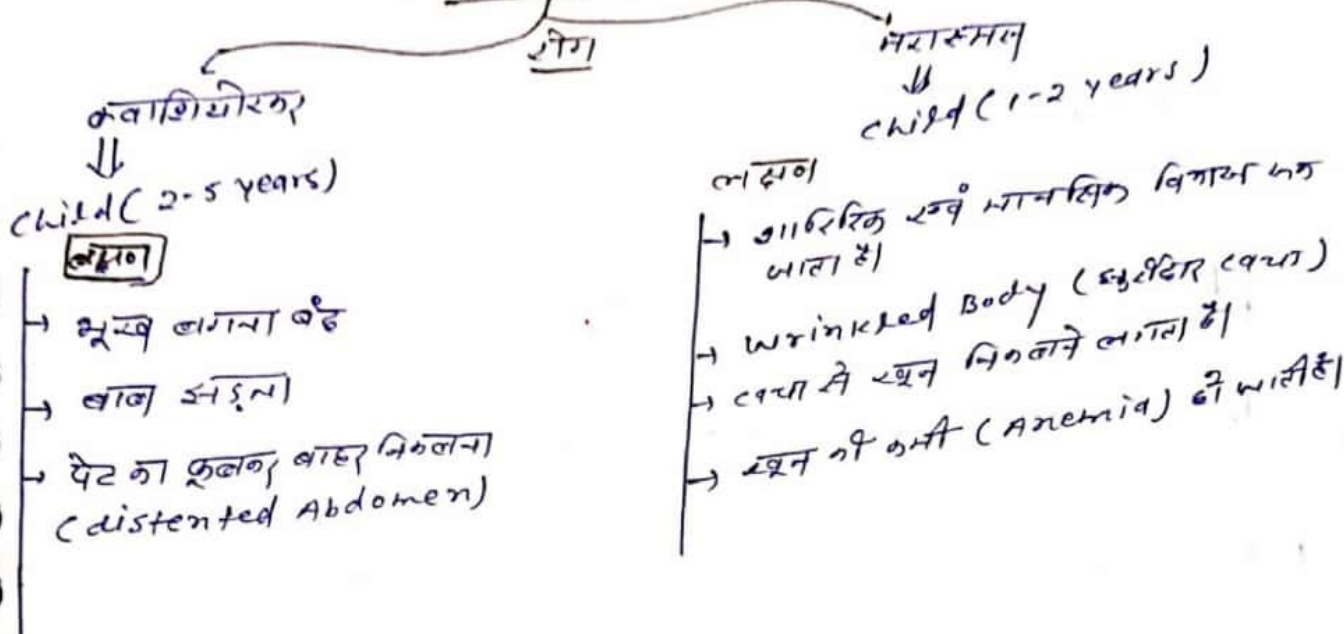 रोग
क्वाशियोरकर
⇓
child ( 2-5 years)
लक्षण
→ भूख लगना बंद
→ बाल झड़ना
→ पेट का फूलकर बाहर निकलना
(distented Abdomen)
मरास्मस
⇓
child ( 1-2 years )
लक्षण
→ शारिरिक एवं मानसिक विकास रूक
जाता है।
→ wrinkled Body ( झुर्रीदार त्वचा )
→ त्वचा से खून निकलने लगता है।
→ खून की कमी ( Anemia ) हो जाती है।